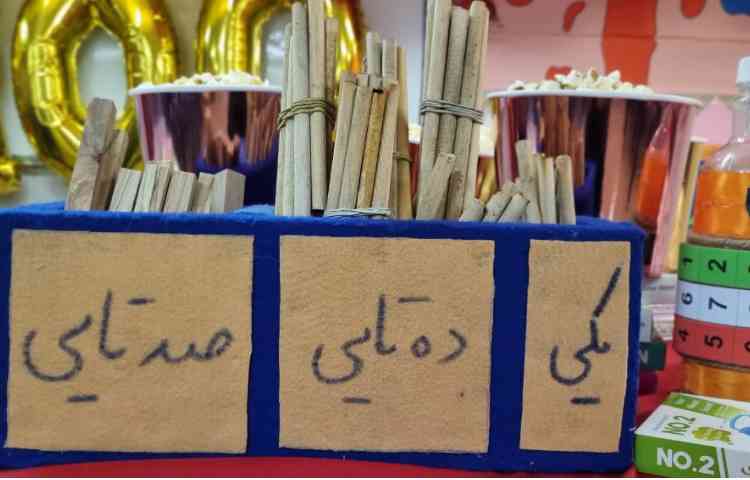 صد تایی
ده تایی
یکی
1 2
6 7
4 5
NO.2
NO.2